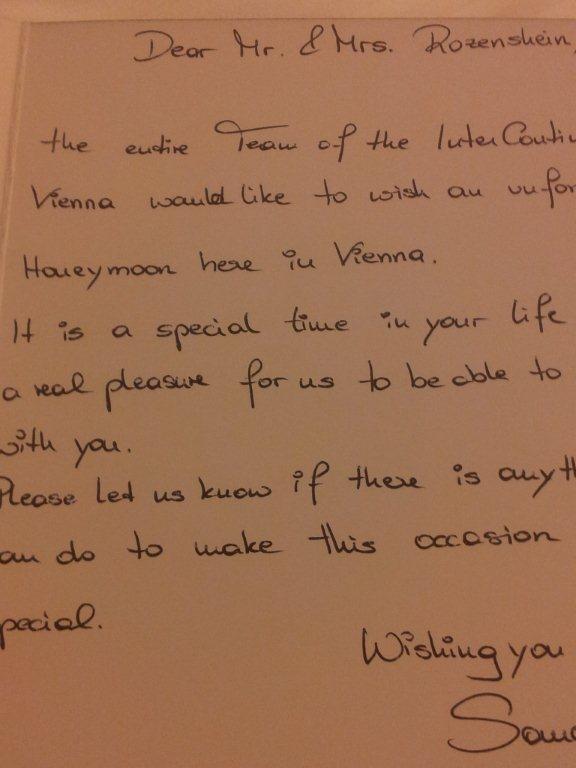 Dear Mr. & Mrs. Rozenshein,
the entire Team of the InterContin
Vienna would like to wish an unfor
Honeymoon here in Vienna.
It is a special time in your life
a real pleasure for us to be able to
with you.
Please let us know if there is anyth
an do to make this occasion
pecial.
Wishing you